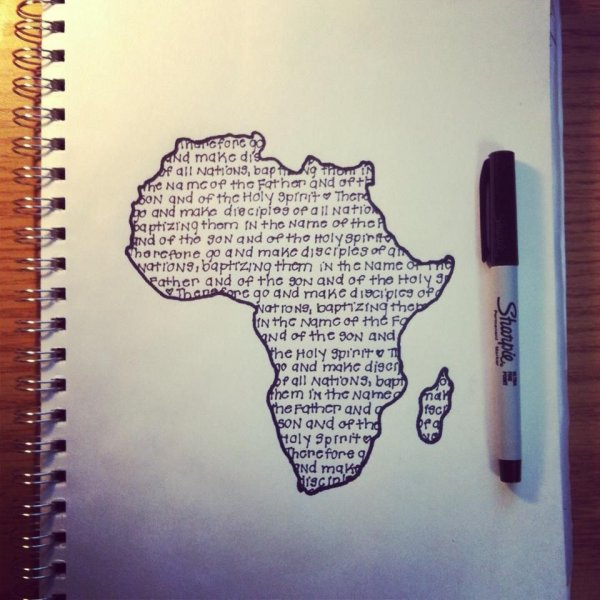 Therefore go
and make dis
of all Nations, baptizing them in
the Name of the Father and of th
son and of the Holy Spirit ♥ There
go and make disciples of all Nation
baptizing them in the Name of the F
and of the son and of the Holy Spirit
Therefore go and make disciples of all
Nations, baptizing them in the Name of the
Father and of the son and of the Holy Sp
♥ Therefore go and make disciples of a
Nations, baptizing them
in the Name of the Fa
and of the son and
the Holy Spirit ♥ Th
go and make disci
of all Nations, bapt
them in the Name o
the Father and o
son and of the
Holy Spirit ♥
Therefore go
and make
disciple
go
mak
disci
of a
Sharpie